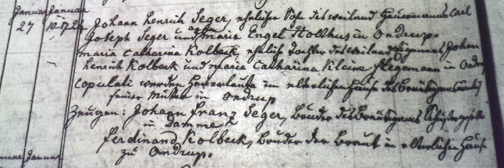 Januar Januar Johann Henrich Seger, ehelicher Sohn des weiland Heuermanns Carl
27 10. 17. 24. Joseph Seger und Maria Engel Kollhus in Ondrup.
Maria Catharina Kolbeck, eheliche Tochter des weiland Johan
Henrich Kolbeck und Maria Catharina Kleine in Ondr
copulati werden Heuerleute im elterlichen Hause des Bräutigams
Mutter in Ondrup
Zeugen: Johann Franz Seger, Bruder des Bräutigams
in Damme
Ferdinand Kolbeck, Bruder der Braut in elterlichen Hause
zu Ondrup.
Januar